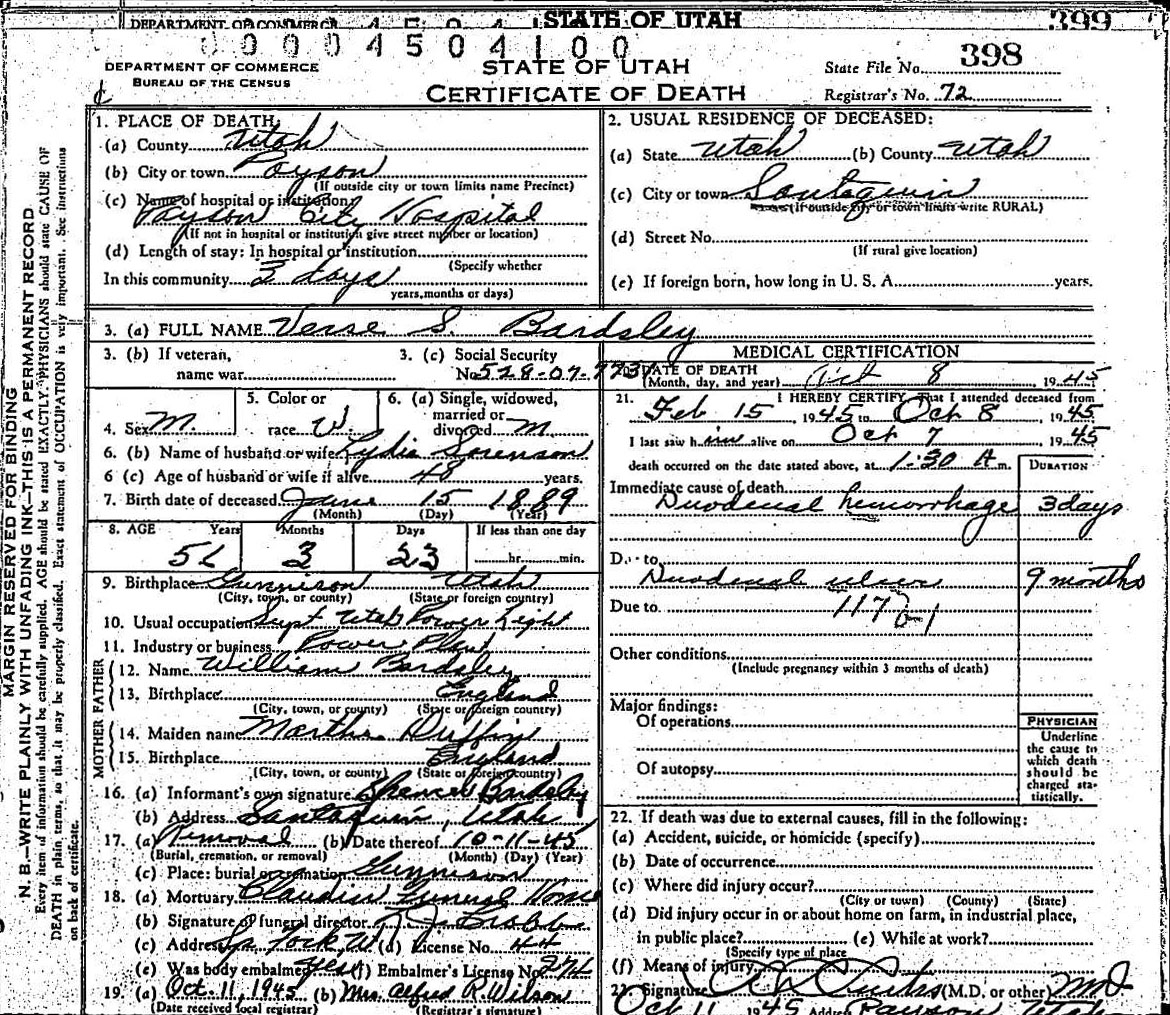 DEPARTMENT OF COMMERCE STATE OF UTAH 399
0 0 0 0 4 5 0 4 1 0 0
DEPARTMENT OF COMMERCE
BUREAU OF THE CENSUS
STATE OF UTAH
CERTIFICATE OF DEATH
State File No. 398
Registrar's No. 72
MARGIN RESERVED FOR BINDING
N. B.—WRITE PLAINLY WITH UNFADING INK—THIS IS A PERMANENT RECORD
Every item of information should be carefully supplied. AGE should be stated EXACTLY. PHYSICIANS should state CAUSE OF
DEATH in plain terms, so that it may be properly classified. Exact statement of OCCUPATION is very important. See Instructions
on back of certificate.
1. PLACE OF DEATH
(a) County Utah
(b) City or town Payson
(If outside city or town limits name Precinct)
(c) Name of hospital or institution
Payson City Hospital
(If not in hospital or institution give street number or location)
(d) Length of stay: In hospital or institution
(Specify whether
In this community 3 days
years, months or days)
2. USUAL RESIDENCE OF DECEASED:
(a) State Utah (b) County Utah
(c) City or town Santaquin
(If outside city or town limits write RURAL)
(d) Street No.
(If rural give location)
(e) If foreign born, how long in U. S. A. years.
3. (a) FULL NAME Verse S. Bardsley
3. (b) If veteran,
name war
3. (c) Social Security
No. 528-07-773
4. Sex M.
5. Color or
race W.
6. (a) Single, widowed,
married or
divorced M
6. (b) Name of husband or wife Lydia Sorenson
6 (c) Age of husband or wife if alive 48 years.
7. Birth date of deceased June 15 1889
(Month) (Day) (Year)
8. AGE Years Months Days If less than one day
3 23 hr. min.
9. Birthplace Gunnison Utah
(City, town, or county) (State or foreign country)
10. Usual occupation Supt Utah Power Light
11. Industry or business Power Plant
FATHER
12. Name William Bardsley
13. Birthplace England
(City, town, or county) (State or foreign country)
MOTHER
14. Maiden name Martha Duffin
15. Birthplace England
(City, town, or county) (State or foreign country)
16. (a) Informant's own signature Spencer Bardsley
(b) Address Santaquin, Utah
17. (a) Removal (b) Date thereof 10-11-45
(Burial, cremation, or removal) (Month) (Day) (Year)
(c) Place: burial or cremation Gunnison
18. (a) Mortuary Claudin Funeral Home
(b) Signature of funeral director
(c) Address (d) License No. 44
(e) Was body embalmed yes (f) Embalmer's License No. 274
19. (a) Oct. 11, 1945 (b) Mrs. Alfred R. Wilson
(Date received local registrar) (Registrar's signature)
MEDICAL CERTIFICATION
20. DATE OF DEATH
(Month, day, and year) Oct 8, 1945
21. I HEREBY CERTIFY, That I attended deceased from
Feb 15, 1945 to Oct 8, 1945
I last saw him alive on Oct 7 1945
death occurred on the date stated above, at 1:30 A.m.
DURATION
Immediate cause of death
Duodenal hemorrhage 3 days
Due to
Duodenal ulcer 9 months
Due to 117
Other conditions
(Include pregnancy within 3 months of death)
Major findings:
Of operations
Of autopsy
PHYSICIAN
Underline
the cause to
which death
should be
charged sta-
tistically.
22. If death was due to external causes, fill in the following:
(a) Accident, suicide, or homicide (specify)
(b) Date of occurrence
(c) Where did injury occur?
(City or town) (County) (State)
(d) Did injury occur in or about home on farm, in industrial place,
in public place? (e) While at work?
(Specify type of place
(f) Means of injury
23. Signature (M.D. or other) MD
Oct 11 1945 Address Payson Utah